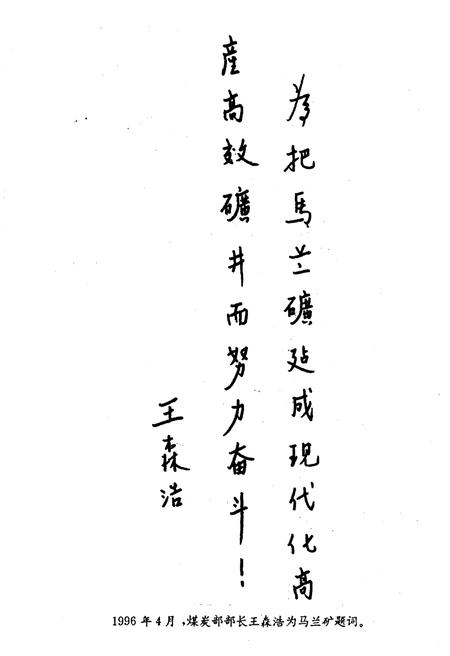 为把馬兰礦建成现代化高
産高效礦井而努力奋斗！
王森浩
1996年4月，煤炭部部长王森浩为马兰矿题词。